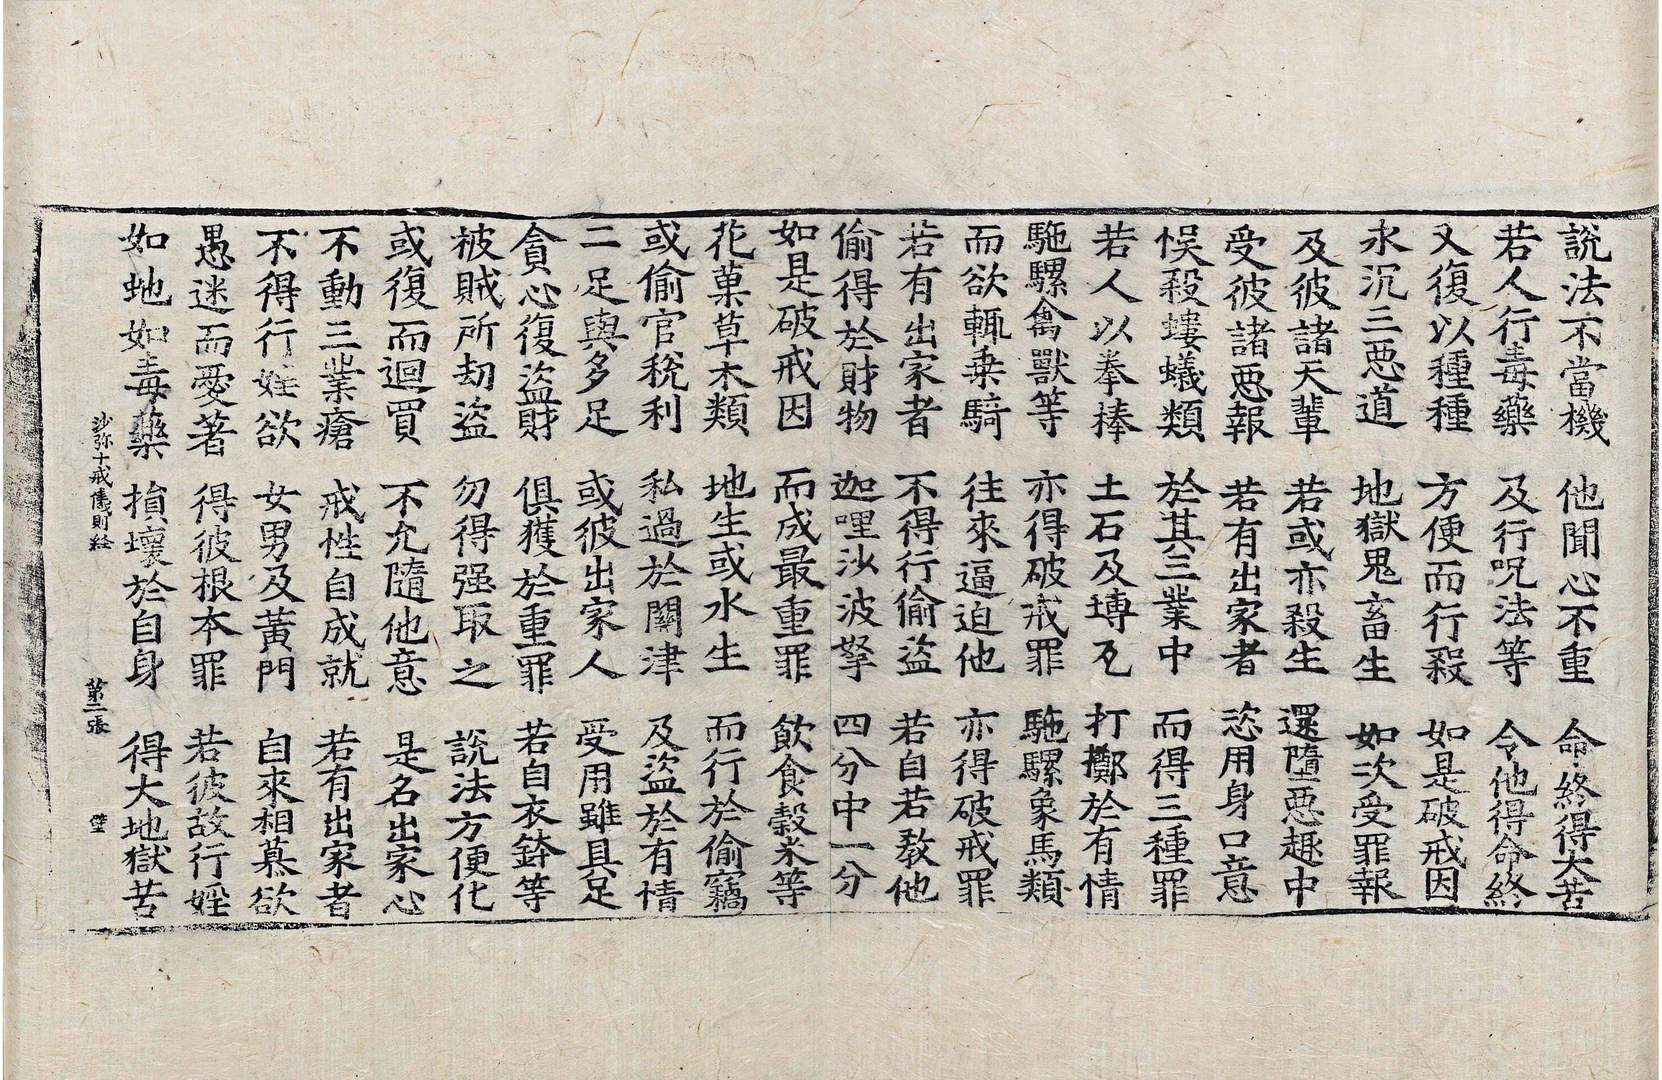 說法不當機 他聞心不重 命終得大苦
若人行毒藥 及行呪法等 令他得命終
又復以種種 方便而行殺 如是破戒因
永沉三惡道 地獄鬼畜生 如次受罪報
及彼諸天輩 若或亦殺生 還墮惡趣中
受彼諸惡報 若有出家者 恣用身口意
悮殺螻蟻類 於其三業中 而得三種罪
若人以拳棒 土石及塼瓦 打擲於有情
駞騾禽獸等 亦得破戒罪 駞騾象馬類
而欲輒乗騎 往來逼迫他 亦得破戒罪
若有出家者 不得行偷盜 若自若教他
偷得於財物 迦哩沙波拏 四分中一分
如是破戒因 而成最重罪 飲食穀米等
花菓草木類 地生或水生 而行於偷竊
或偷官稅利 私過於關津 及盜於有情
二足與多足 或彼出家人 受用雖具足
貪心復盜財 俱獲於重罪 若自衣鉢等
被賊所劫盜 勿得强取之 說法方便化
或復而迴買 不允隨他意 是名出家心
不動三業瘡 戒性自成就 若有出家者
不得行婬欲 女男及黃門 自來相慕欲
愚迷而愛著 得彼根本罪 若彼故行婬
如虵如毒藥 損壞於自身 得大地獄苦
沙弥十戒儀則経 第二張 璧